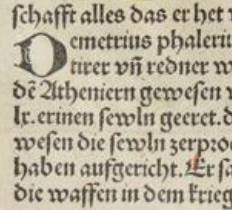 schafft alles das er het
Demetrius phaleriu
tirer vñ redner w
dē Atheniern gewesen
lx.erinen sewln geeret.d
wesen die sewln zerpro
haben aufgericht.Er sa
die waffen in dem krieg